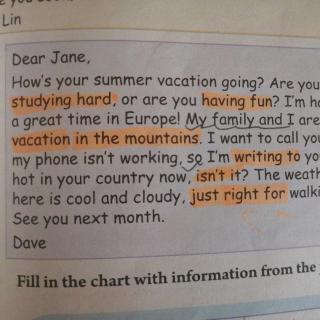 Lin
Dear Jane,
How's your summer vacation going? Are you
studying hard, or are you having fun? I'm
a great time in Europe! My family and I are
vacation in the mountains. I want to call you
my phone isn't working, so I'm writing to
hot in your country now, isn't it? The
here is cool and cloudy, just right for
See you next month.
Dave
Fill in the chart with information from the